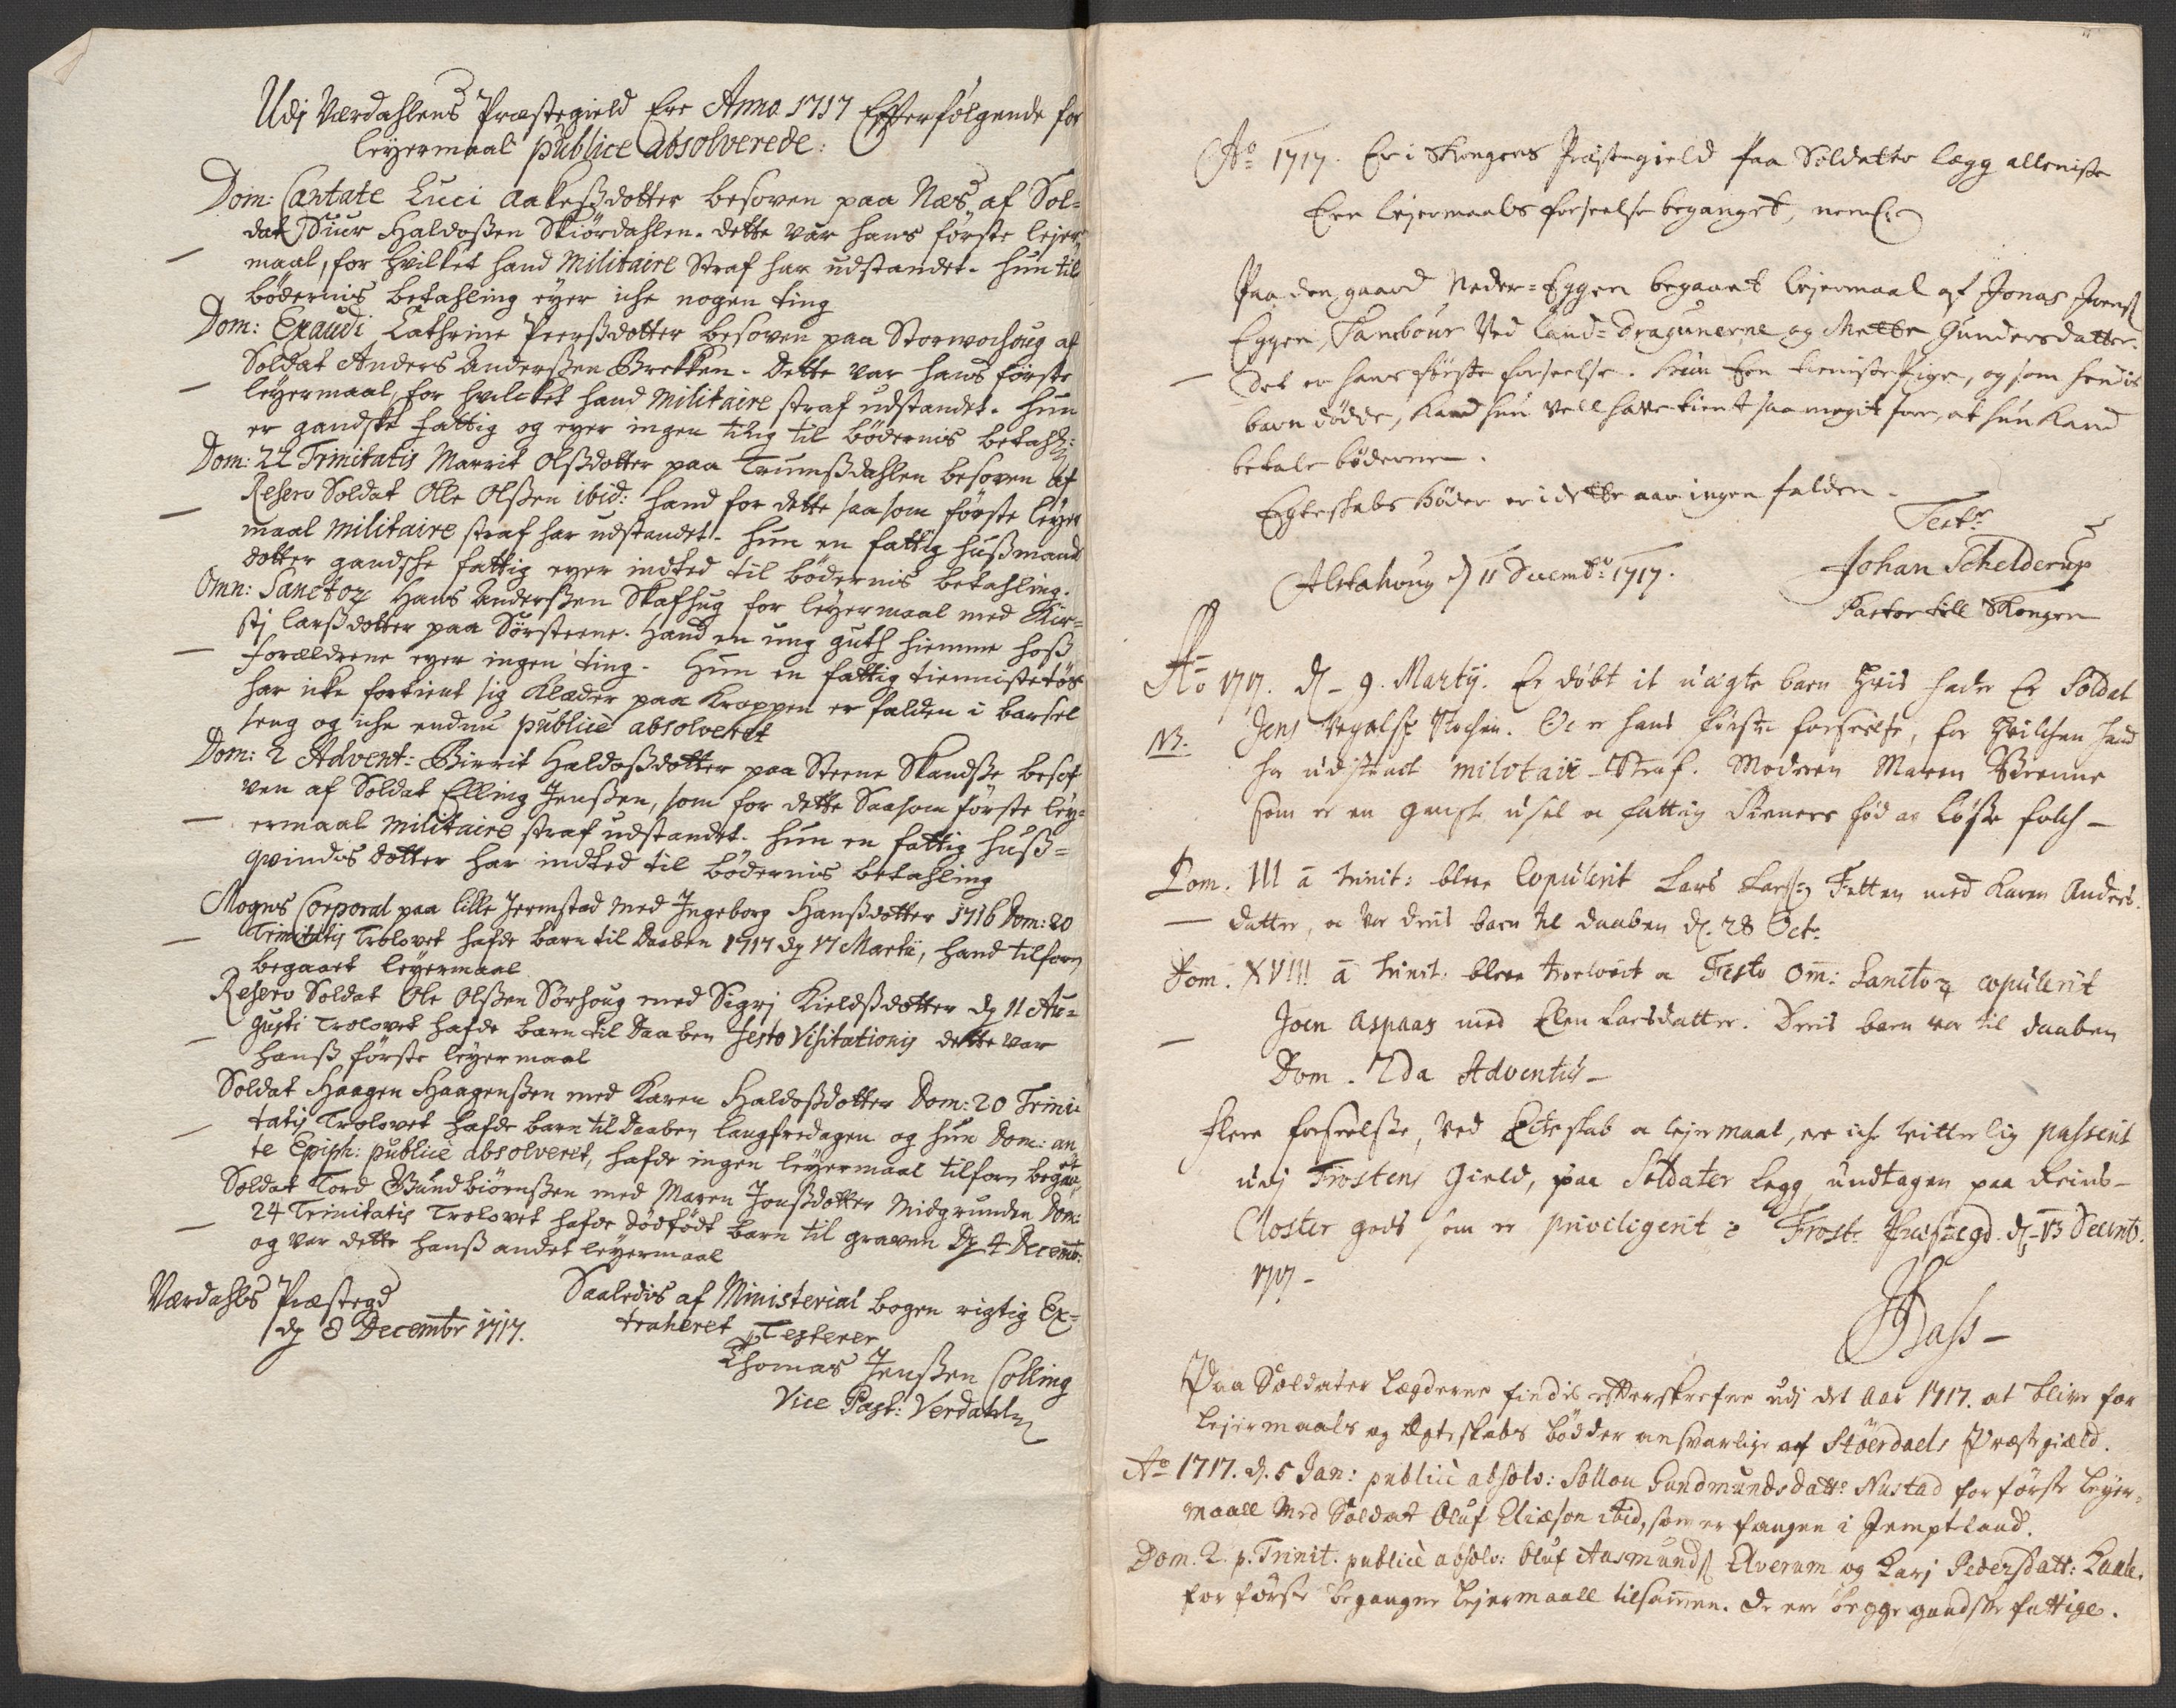 Udj Værdahlens Præstegield Ere Anno 1717 Efterfølgende for
leyermaal publice absolverede:
Dom: Cantate Luci Aakesßdotter besoven paa Næs af Sol-
dat Siur Haldosßen Skiördahlen. dette var hans förste lejer-
maal, for hvilket hand Militaire Straf har udstandet. hun til
bödernis betahling eyer iche nogen ting
Dom: Exaudi Cathrine Peersßdotter besoven paa Storworhoug af
Soldat Anders Andersßen Brekken. Dette var hans förste
leyermaal, for hvilcket hand Militaire straf udstandet. hun
er gandske fattig og eyer ingen ting til bödernis betahl:
Dom: 22 Trinitatis Marrit Olsßdotter paa Trumsßdahlen besoven af
Reserv Soldat Olle Olsßen ibid: hand for dette saasom förste leyer
maal militaire straf har udstandet. hun en fattig husßmands
dotter gandsche fattig eyer indted til bödernis betahling.
Omn: Sanctor Hans Andersßen Skafhug for leyermaal med Kir-
sti larsßdotter paa Sörsteene. Hand en ung guth hiemme hosß
forældrene eyer ingen ting. Hun en fattig tiennistetös
har icke fortient sig Klæder paa Kroppen er falden i barsel
seng og iche endnu publice absolveret
Dom: 2 Advent: Birrit Haldosßdotter paa Steene Skandsße besof
ven af Soldat Elling Jensßen, som for dette Saasom förste ley-
ermaal militaire straf udstandet. hun en fattig husß-
qvindes dotter har indted til bödernis betahling
Mogens Corporal paa lille Jermstad med Ingeborg Hansßdotter 1716 Dom: 20
Trinitatis Trolovet hafde barn til Daaben 1717 dg 17 Martii, hand tilforn
begaaet leyermaal
Reserv Soldat Ole Olsßen Sörhoug med Sigri Kieldsßdotter dg 11 Au-
gusti Trolovet hafde barn til Daaben festo Visitationis dette var
hansß förste leyermaal
Soldat Haagen Haagensßen med Karen Haldosßdotter Dom: 20 Trini-
tatis Trolovet hafde barn til Daaben langfredagen og hun Dom: an
te Epiph: publice absolveret, hafde ingen leyermaal tilforn begaaet
Soldat Tord Gundbiörnsßen med Maren Jonsßdotter Midgrunden Dom:
24 Trinitatis Trolovet hafde dödfödt barn til graven dg 4 Decemb:
og var dette hansß andet leyermaal
Værdahls Præstegd
dg 8 Decembr 1717.
Saaledis af Ministerial bogen rigtig Ex-
traheret Testerer
Thomas Jensßen Colling
Vice Past: Verdahln
Ao 1717. Er i Skongens Præstegield paa Soldatter lægg alleniste
Een lejermaals forseelse beganget, nemlig
Paa den gaard Neder-Eggen begaaet lejermaal af Jonas Joens
Eggen, Tambour ved land-Dragunerne og Mette Gundersdatter.
Det er hans förste forseelse. hun Een tieniste Pige, og som hendis
barn dödde, kand hun vell have tient saa megit for, at hun kand
betale böderne.
Egteskabs Böder er i dette aar ingen falden.
Test
Alstahoug d 11 Decembr 1717.
Johan Schelderup
Pastor till Skongen
Ao 1717. d. 9. Martij. Er döbt it uægte barn hvis fader Er Soldat
NB. Jens Stochen. Det er hans förste forseelse, for hvilchen hand
har udstaaet militair Straf. Moderen Maren Brenne
som er en ganske usel og fattig Stemers föd af lösse folch
Dom. III a trinit: blev Copulerit Lars Larsßen Fetten med Karen Anders-
datter, og var deris barn til daaben d. 28 Oct.
Dom. XVIII a trinit. bleve troelovit og Festo Om: Sanctor copulerit
Joen Aspaas med Elen Larsdatter. Deris barn var til daaben
Dom. 2da Adventus
flere forseelse, ved Ecteskab og lejermaal, ere iche vitterlig passerit
udj Frostens Gield, paa Soldater legg, undtagen paa Reins-
Closter gods som er priviligerit Frost. Præstegd. d. 13 Decemb.
1717
Hass
Paa Soldater lægderne findis efterskrefne udi det Aar 1717. at blive for
Lejermaals og Ægteskabs bödder ansvarlige af Stöerdaels Præstegiæld.
Ao 1717. d. 5 Jan: publicè absolv: Sollou Gundmundsdattr Nustad for förste leyer-
maall med Soldat Oluf Eliæson ibid, som er fangen i Jempteland.
Dom. 2. p. Trinit. publicè absolv: Oluf Aasmunds Elverum og Karj Pedersdatt:
for förste begangne lejermaall tilsammen. De ere begge gandske fattige.